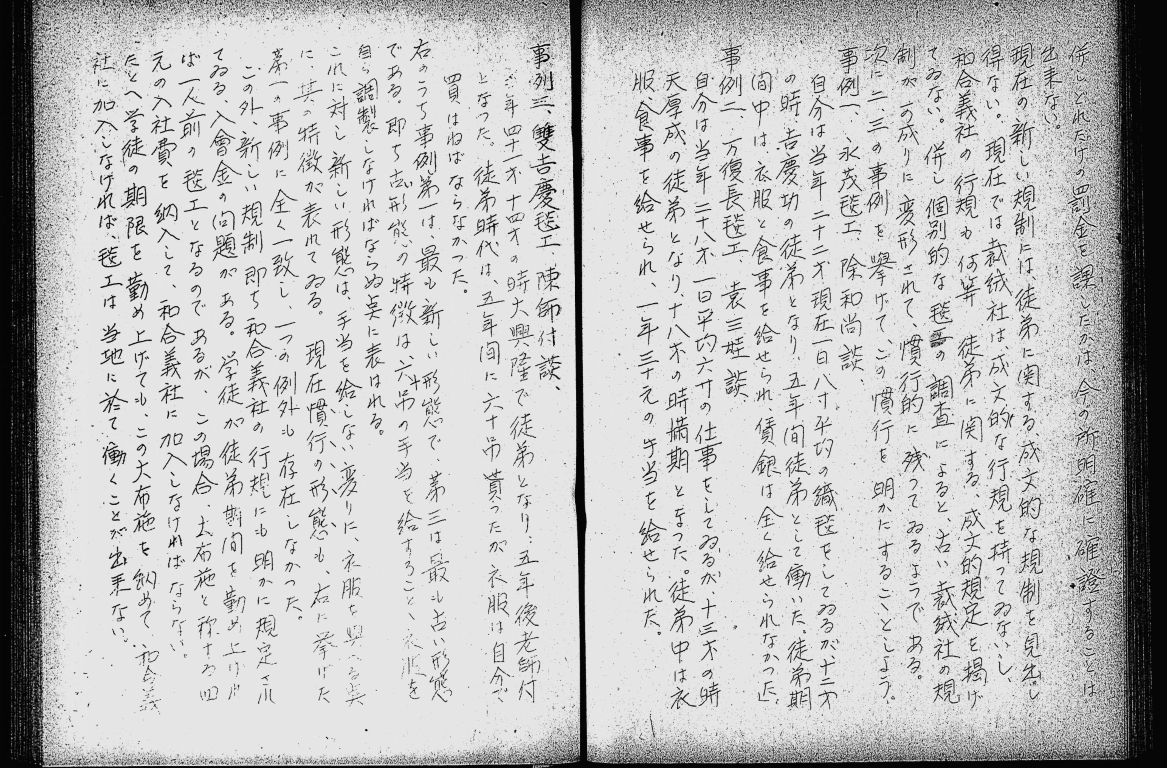 併しどれだけの罰金を課したかは、今の所明確に確證することは
出来ない。
現在の新しい規制には、徒弟に関する、成文的な規制を見出し
得ない。現在では裁絨社は、成文的な行規を持ってゐないし、
和合義社の行規も、何等 徒弟に関する、成文的規定を掲げ
てゐない。併し個別的な毯の調査によると、古い裁絨社の規
制が一の成りに変形されて、慣行的に残ってゐるようである。
次に二、三の事例を挙げて、この慣行を明かにすることとしよう。
事例一、永茂毯工、除和尚談、
自分は当年二十二才現在一日八寸平均の織毯をしてゐるが十二才
の時吉慶功の徒弟となり、五年間徒弟として働いた。徒弟期
間中は、衣服と食事を給せられ賃銀は全く給せられなかった。
事例二、万復長毯工、袁三娃談
自分は当年二十八才一日平均六寸の仕事をしてゐるが、十三才の時
天厚成の徒弟となり十八才の時満期となった。徒弟中は衣
服、食事を給せられ、一年三十元の手当を給せられた。
事例三、雙吉慶毯工、陳師付談、
年四十一才十四才の時大興隆で徒弟となり、五年後老師付
となった。徒弟時代は、五年間に六十吊貰ったが衣服は自分で
買はねばならなかった。
右のうち事例第一は、最も新しい形態で、第三は最も古い形態
である。即ち古形態の特徴は、六十吊の手当を給すること、衣服を
自ら調製しなければならぬ点に表はれる。
これに対し新しい形態は、手当を給しない変りに、衣服を與へる点
に、其の特徴が表れてゐる。現在慣行の形態も、右に挙げた
第一の事例に全く一致し、一つの例外も存在しなかった。
この外、新しい規制即ち和合義社の行規にも明かに規定され
てゐる、入會金の問題がある。学徒が徒弟期間を勤め上げれ
ば一人前の毯工となるのであるが、この場合、大布施と称する四
元の入社費を納入して、和合義社に加入しなければならない。
たとへ学徒の期限を勤め上げても、この大布施を納めて、和合義
社に加入しなければ、毯工は当地に於て働くことが出来ない。